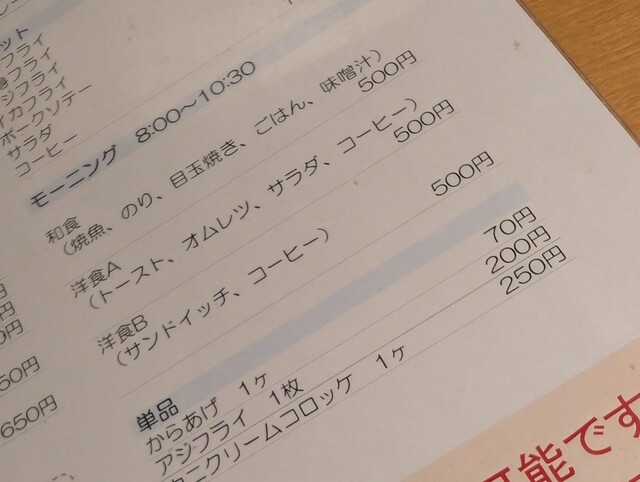 フライ
フライ
ジフライ
イカフライ
ポークソテー
サラダ
コーヒー
モーニング 8:00～10:30
和食
（焼魚、のり、目玉焼き、ごはん、味噌汁） 500円
洋食A
（トースト、オムレツ、サラダ、コーヒー） 500円
洋食B
（サンドイッチ、コーヒー） 500円
単品
からあげ 1ヶ 70円
アジフライ 1枚 200円
ニクリームコロッケ 1ヶ 250円
50円
650円
可能です